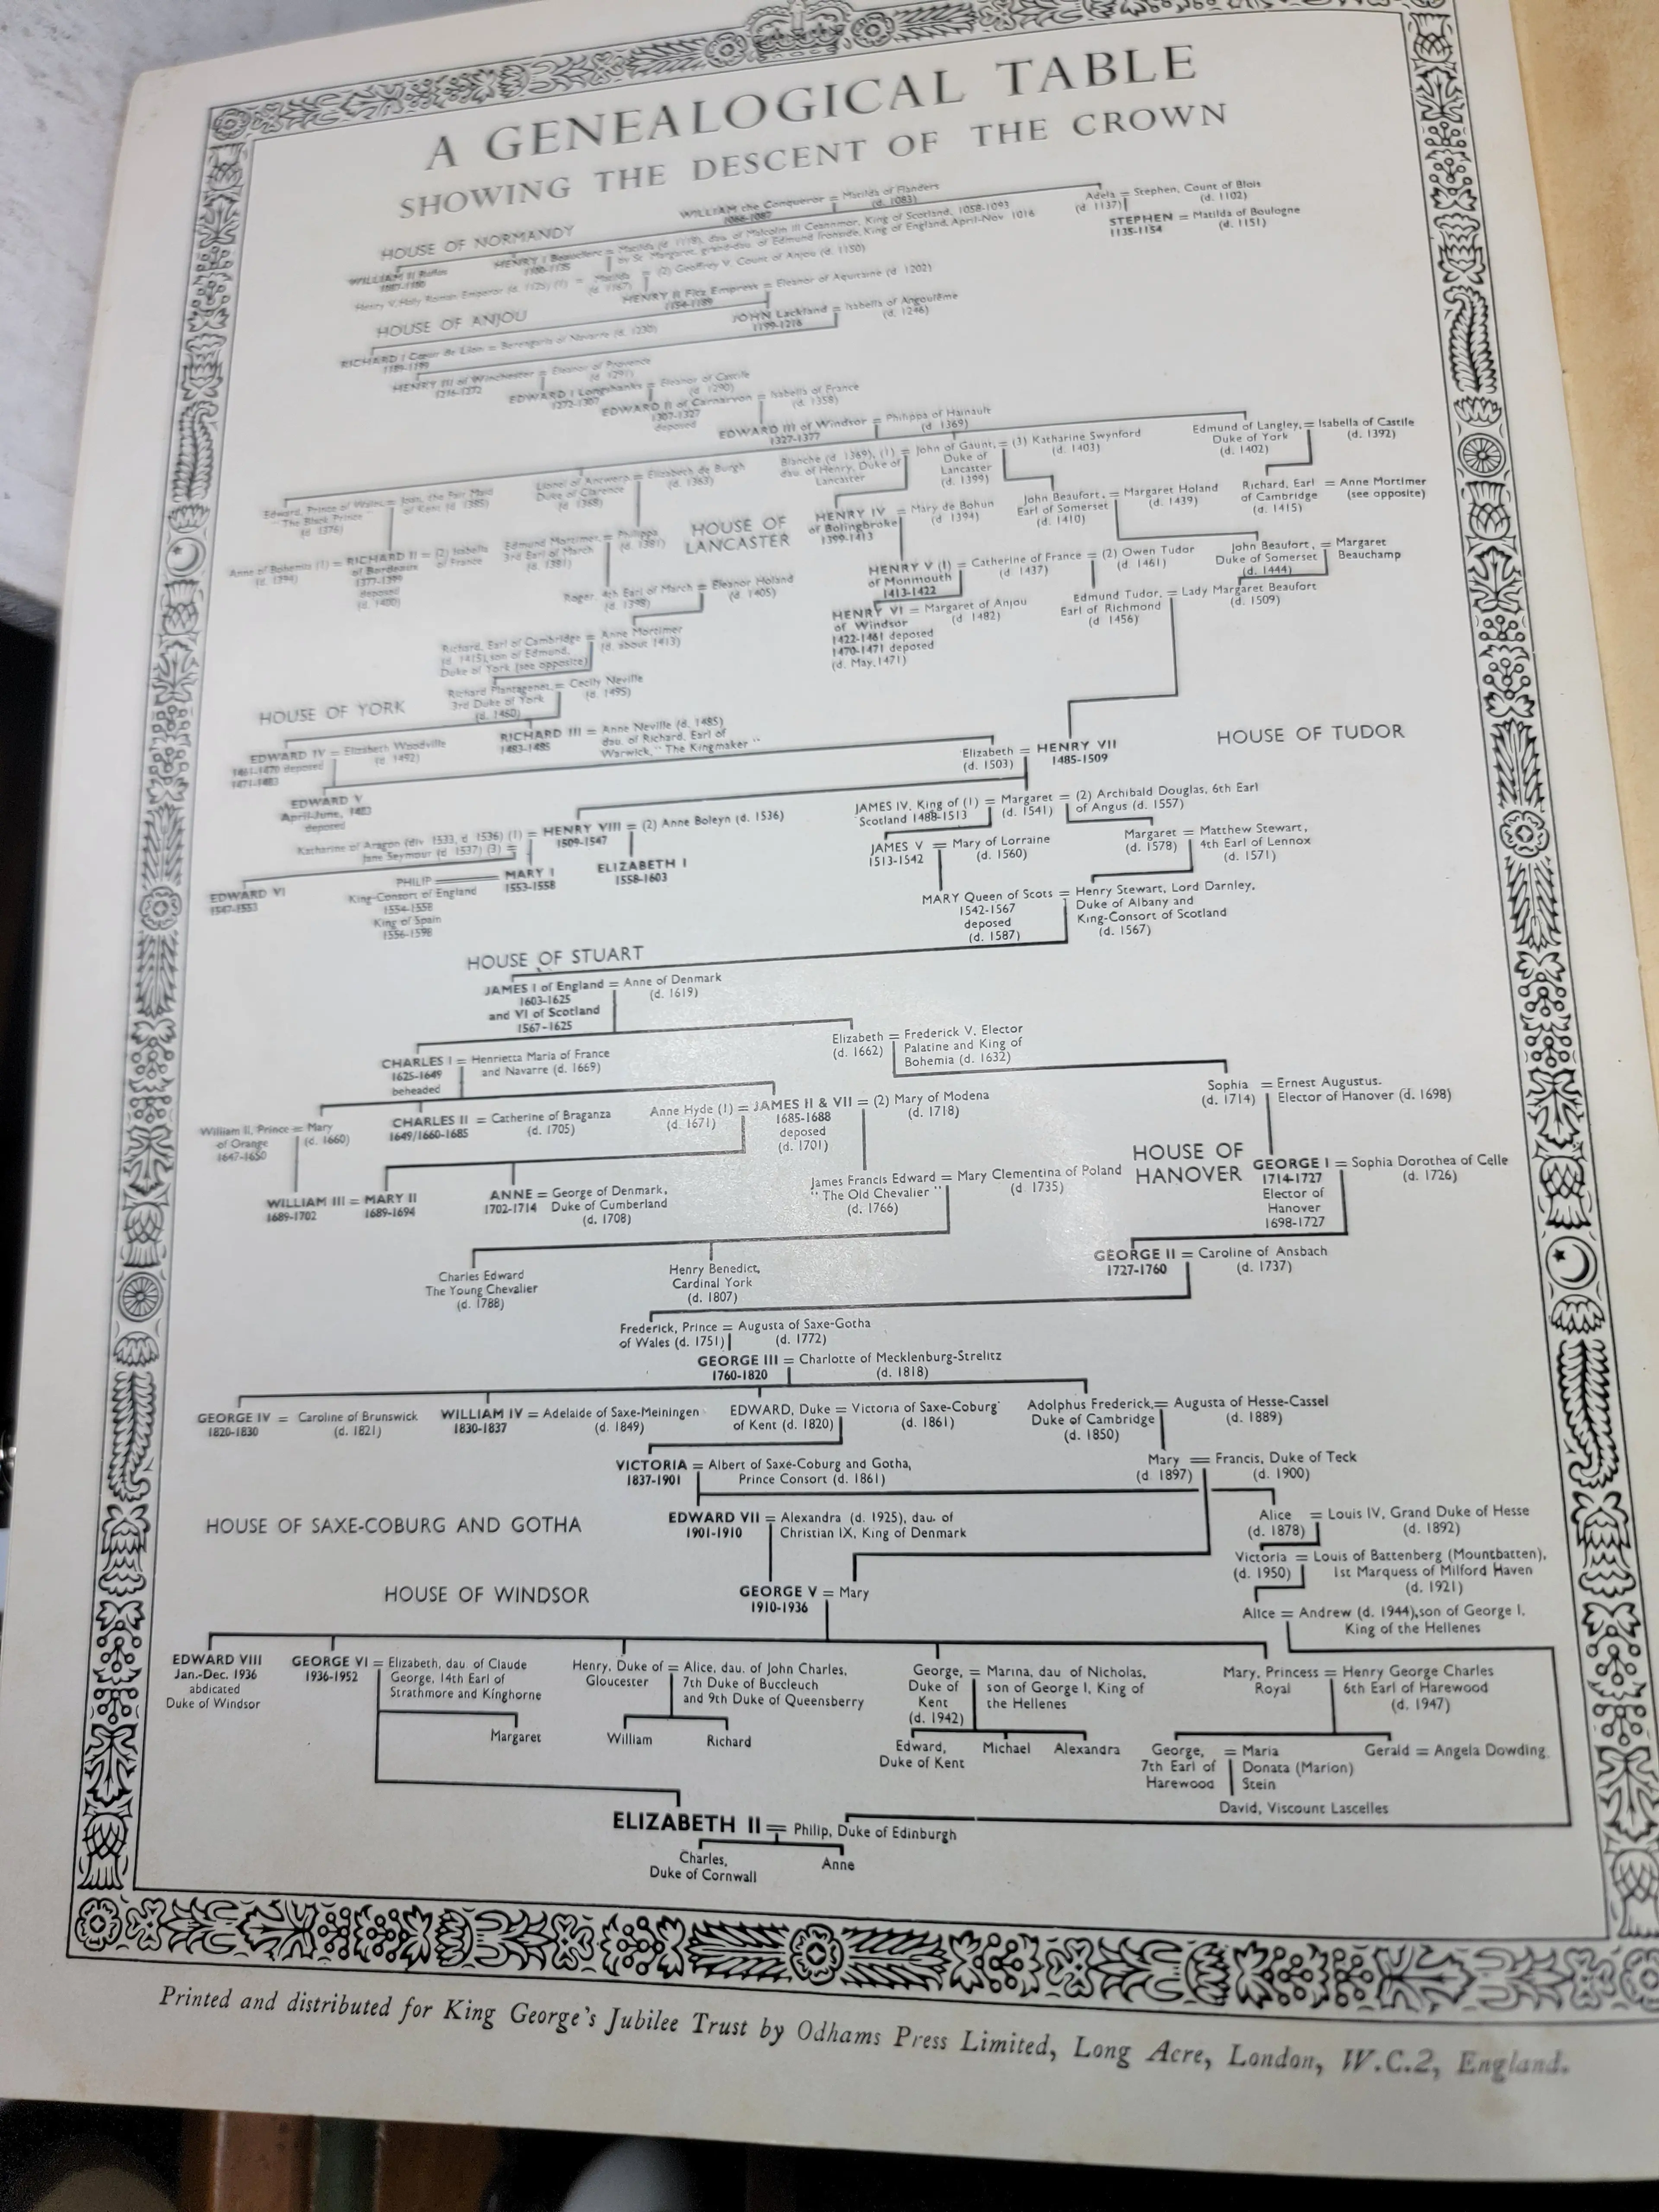 A GENEALOGICAL TABLE
SHOWING THE DESCENT OF THE CROWN
HOUSE OF NORMANDY
WILLIAM the Conqueror = Matilda of Flanders
1066-1087 (d. 1083)
Adela = Stephen, Count of Blois
(d. 1137) (d. 1102)
STEPHEN = Matilda of Boulogne
1135-1154 (d. 1151)
WILLIAM II Rufus
HENRY I Beauclerc = Matilda (d. 1118), dau. of Malcolm III Ceannmor, King of Scotland, 1058-1093
by St. Margaret, grand-dau. of Edmund Ironside, King of England, April-Nov 1016
Henry V, Holy Roman Emperor (d. 1125) (1) = Matilda = (2) Geoffrey V. Count of Anjou (d. 1150)
(d. 1167)
HOUSE OF ANJOU
HENRY II Fitz Empress = Eleanor of Aquitaine (d 1202)
1154-1189
JOHN Lackland = Isabella of Angoulême
1199-1216 (d. 1246)
RICHARD I Cœur de Lion = Berengaria of Navarre (d. 1230)
1189-1199
HENRY III of Winchester = Eleanor of Provence
1216-1272 (d. 1291)
EDWARD I Longshanks = Eleanor of Castile
1272-1307 (d. 1290)
EDWARD II of Carnarvon = Isabella of France
1307-1327 (d. 1358)
deposed
EDWARD III of Windsor = Philippa of Hainault
1327-1377 (d. 1369)
Edward, Prince of Wales = Joan, the Fair Maid
"The Black Prince" of Kent (d 1385)
(d 1376)
Lionel of Antwerp = Elizabeth de Burgh
Duke of Clarence (d. 1363)
(d 1368)
Blanche (d 1369), (1) = John of Gaunt, = (3) Katharine Swynford
dau. of Henry, Duke of Duke of (d. 1403)
Lancaster Lancaster
(d. 1399)
Edmund of Langley, = Isabella of Castile
Duke of York (d. 1392)
(d. 1402)
Richard, Earl = Anne Mortimer
of Cambridge (see opposite)
(d. 1415)
Anne of Bohemia (1) = RICHARD II = (2) Isabella
(d. 1394) of Bordeaux of France
1377-1399
deposed
(d. 1400)
Edmund Mortimer, = Philippa
3rd Earl of March (d. 1381)
(d. 1381)
HOUSE OF
LANCASTER
HENRY IV = Mary de Bohun
of Bolingbroke (d 1394)
1399-1413
John Beaufort, = Margaret Holand
Earl of Somerset (d. 1439)
(d. 1410)
Roger, 4th Earl of March = Eleanor Holand
(d. 1398) (d. 1405)
HENRY V (1) = Catherine of France = (2) Owen Tudor
of Monmouth (d. 1437) (d. 1461)
1413-1422
John Beaufort, = Margaret
Duke of Somerset Beauchamp
(d. 1444)
HENRY VI = Margaret of Anjou
of Windsor (d 1482)
1422-1461 deposed
1470-1471 deposed
(d. May, 1471)
Edmund Tudor, = Lady Margaret Beaufort
Earl of Richmond (d. 1509)
(d 1456)
Richard, Earl of Cambridge = Anne Mortimer
(d. 1415), son of Edmund, (d. about 1413)
Duke of York (see opposite)
Richard Plantagenet, = Cecily Neville
3rd Duke of York (d. 1495)
(d. 1460)
HOUSE OF YORK
EDWARD IV = Elizabeth Woodville
1461-1470 deposed (d. 1492)
1471-1483
RICHARD III = Anne Neville (d. 1485)
1483-1485 dau. of Richard, Earl of
Warwick, "The Kingmaker"
Elizabeth = HENRY VII
(d. 1503) 1485-1509
HOUSE OF TUDOR
EDWARD V
April-June, 1483
deposed
Katharine of Aragon (div 1533, d 1536) (1) = HENRY VIII = (2) Anne Boleyn (d. 1536)
Jane Seymour (d 1537) (3) = 1509-1547
JAMES IV, King of (1) = Margaret = (2) Archibald Douglas, 6th Earl
Scotland 1488-1513 (d. 1541) of Angus (d. 1557)
JAMES V = Mary of Lorraine
1513-1542 (d. 1560)
Margaret = Matthew Stewart,
(d. 1578) 4th Earl of Lennox
(d. 1571)
EDWARD VI
1547-1553
PHILIP MARY I
King-Consort of England 1553-1558
1554-1558
King of Spain
1556-1598
ELIZABETH I
1558-1603
MARY Queen of Scots = Henry Stewart, Lord Darnley,
1542-1567 Duke of Albany and
deposed King-Consort of Scotland
(d. 1587) (d. 1567)
HOUSE OF STUART
JAMES I of England = Anne of Denmark
1603-1625 (d. 1619)
and VI of Scotland
1567-1625
CHARLES I = Henrietta Maria of France
1625-1649 and Navarre (d. 1669)
beheaded
Elizabeth = Frederick V. Elector
(d. 1662) Palatine and King of
Bohemia (d. 1632)
Sophia = Ernest Augustus.
(d. 1714) Elector of Hanover (d. 1698)
William II, Prince = Mary
of Orange (d. 1660)
1647-1650
CHARLES II = Catherine of Braganza
1649/1660-1685 (d. 1705)
Anne Hyde (1) = JAMES II & VII = (2) Mary of Modena
(d. 1671) 1685-1688 (d. 1718)
deposed
(d. 1701)
HOUSE OF
HANOVER
GEORGE I = Sophia Dorothea of Celle
1714-1727 (d. 1726)
Elector of
Hanover
1698-1727
WILLIAM III = MARY II
1689-1702 1689-1694
ANNE = George of Denmark,
1702-1714 Duke of Cumberland
(d. 1708)
James Francis Edward = Mary Clementina of Poland
"The Old Chevalier" (d 1735)
(d. 1766)
Charles Edward
The Young Chevalier
(d. 1788)
Henry Benedict,
Cardinal York
(d. 1807)
GEORGE II = Caroline of Ansbach
1727-1760 (d. 1737)
Frederick, Prince = Augusta of Saxe-Gotha
of Wales (d. 1751) (d. 1772)
GEORGE III = Charlotte of Mecklenburg-Strelitz
1760-1820 (d. 1818)
GEORGE IV = Caroline of Brunswick
1820-1830 (d. 1821)
WILLIAM IV = Adelaide of Saxe-Meiningen
1830-1837 (d. 1849)
EDWARD, Duke = Victoria of Saxe-Coburg
of Kent (d. 1820) (d. 1861)
Adolphus Frederick, = Augusta of Hesse-Cassel
Duke of Cambridge (d. 1889)
(d. 1850)
VICTORIA = Albert of Saxe-Coburg and Gotha,
1837-1901 Prince Consort (d. 1861)
Mary = Francis, Duke of Teck
(d 1897) (d. 1900)
HOUSE OF SAXE-COBURG AND GOTHA
EDWARD VII = Alexandra (d. 1925), dau. of
1901-1910 Christian IX, King of Denmark
Alice = Louis IV, Grand Duke of Hesse
(d. 1878) (d. 1892)
Victoria = Louis of Battenberg (Mountbatten),
(d. 1950) 1st Marquess of Milford Haven
(d. 1921)
HOUSE OF WINDSOR
GEORGE V = Mary
1910-1936
Alice = Andrew (d. 1944), son of George I,
King of the Hellenes
EDWARD VIII
Jan.-Dec. 1936
abdicated
Duke of Windsor
GEORGE VI = Elizabeth, dau. of Claude
1936-1952 George, 14th Earl of
Strathmore and Kinghorne
Henry, Duke of = Alice, dau. of John Charles,
Gloucester 7th Duke of Buccleuch
and 9th Duke of Queensberry
George, = Marina, dau of Nicholas,
Duke of son of George I, King of
Kent the Hellenes
(d. 1942)
Mary, Princess = Henry George Charles
Royal 6th Earl of Harewood
(d. 1947)
Margaret
William
Richard
Edward,
Duke of Kent
Michael
Alexandra
George, = Maria
7th Earl of Donata (Marion)
Harewood Stein
Gerald = Angela Dowding.
David, Viscount Lascelles
ELIZABETH II = Philip, Duke of Edinburgh
Charles,
Duke of Cornwall
Anne
Printed and distributed for King George's Jubilee Trust by Odhams Press Limited, Long Acre, London, W.C.2, England.